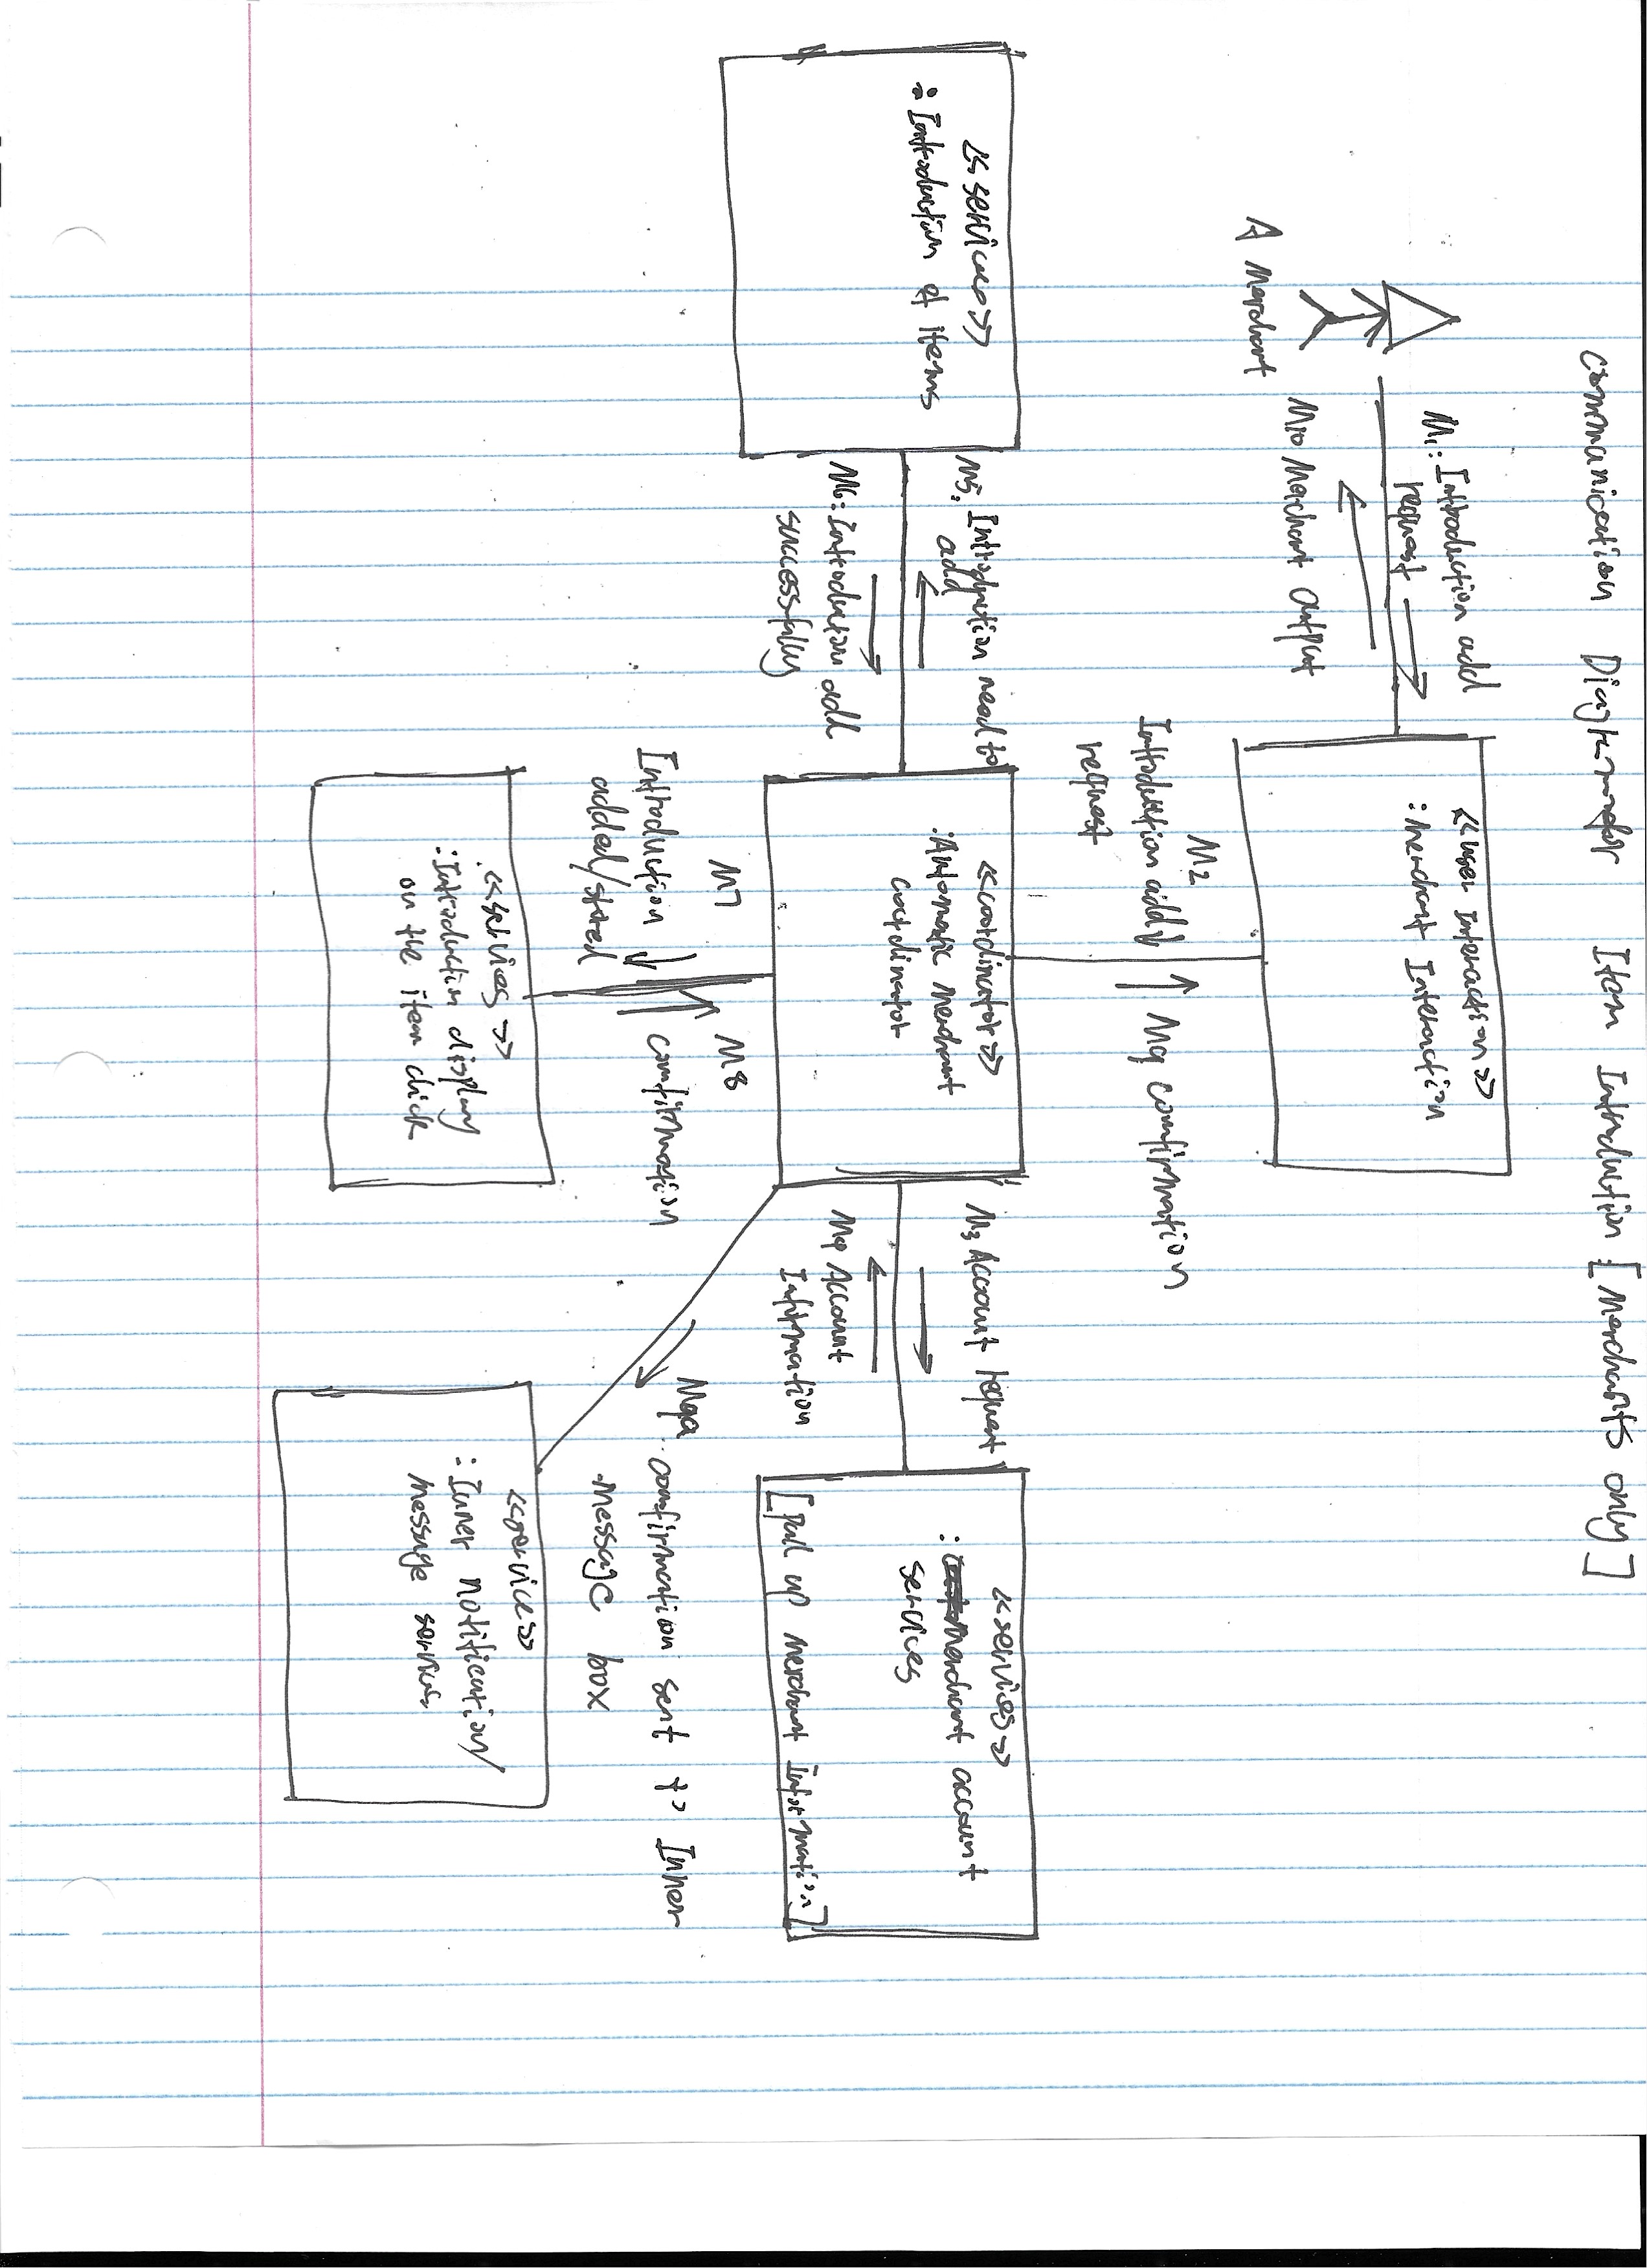 Communication Diagram for Item Introduction [Merchants only]
M1: Introduction add
request
M10 Merchant Output
A Merchant
<<user Interaction>>
: Merchant Interaction
M2
Introduction add
request
M9 comfirmation
<<services>>
: Introduction of items
M5: Introduction need to
add
M6: Introduction add
successfully
<<coordinator>>
: Automatic Merchant
coordinator
M3 Account request
M4 Account
Information
<<services>>
: Merchant account
services
[pull up Merchant Information]
M7
Introduction
added/stored
M8
comfirmation
M9a
comfirmation sent to Inner
message box
<<services>>
: Introduction display
on the item click
<<service>>
: Inner notification/
message services